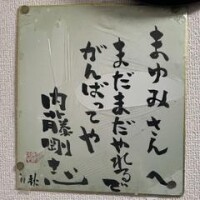 まゆみさんへ
まだまだやれるで
がんばってや
内藤剛志